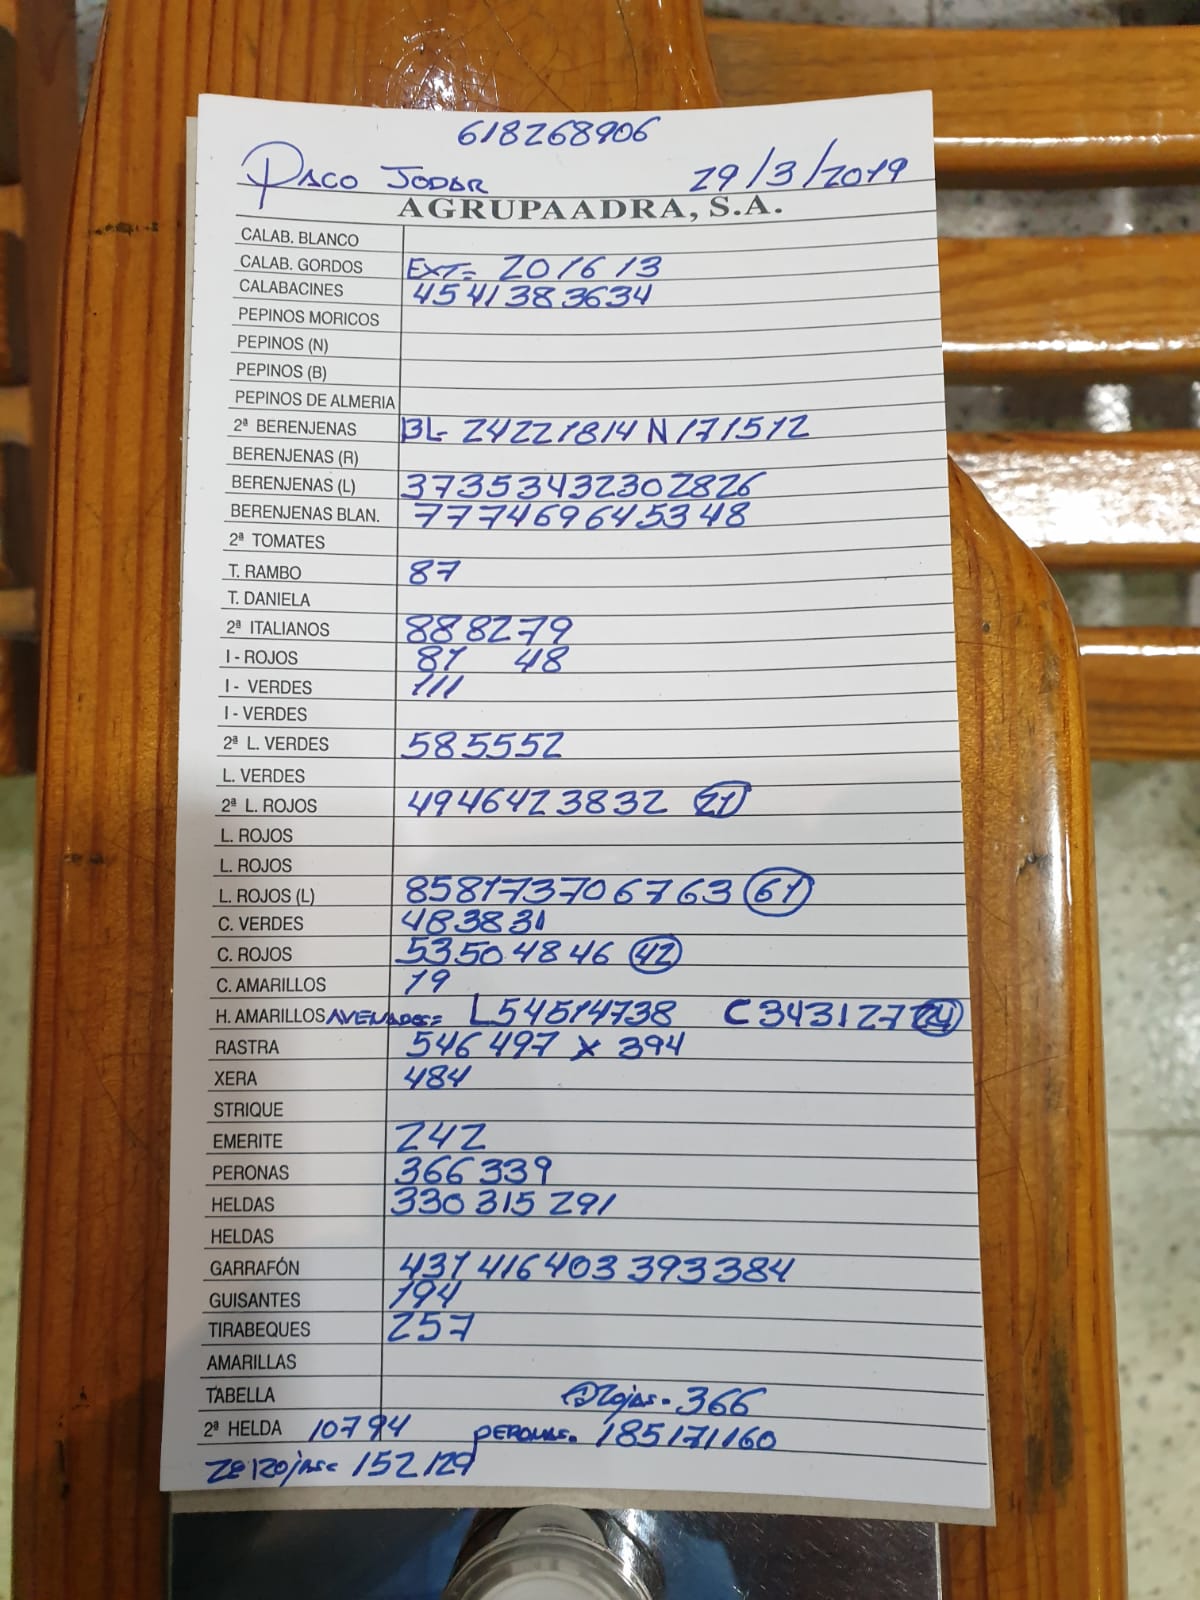 618268906
PACO JODAR 29/3/2019
AGRUPAADRA, S.A.
CALAB. BLANCO
CALAB. GORDOS EXT= 20 16 13
CALABACINES 45 41 38 36 34
PEPINOS MORICOS
PEPINOS (N)
PEPINOS (B)
PEPINOS DE ALMERIA
2ª BERENJENAS BL- 24 22 18 14 N 17 15 12
BERENJENAS (R)
BERENJENAS (L) 37 35 34 32 30 28 26
BERENJENAS BLAN. 77 74 69 64 53 48
2ª TOMATES
T. RAMBO 87
T. DANIELA
2ª ITALIANOS 88 82 79
I - ROJOS 81 48
I - VERDES 111
I - VERDES
2ª L. VERDES 58 55 52
L. VERDES
2ª L. ROJOS 49 46 42 38 32 21
L. ROJOS
L. ROJOS
L. ROJOS (L) 85 81 73 70 67 63 61
C. VERDES 48 38 31
C. ROJOS 53 50 48 46 42
C. AMARILLOS 19
H. AMARILLOS AVENADOS= L 54 51 47 38 C 34 31 27 24
RASTRA 546 497 x 394
XERA 484
STRIQUE
EMERITE 242
PERONAS 366 339
HELDAS 330 315 291
HELDAS
GARRAFÓN 431 416 403 393 384
GUISANTES 194
TIRABEQUES 257
AMARILLAS
TABELLA Rojas- 366
2ª HELDA 107 94 PERONAS- 185 171 160
2ª Rojas= 152 129